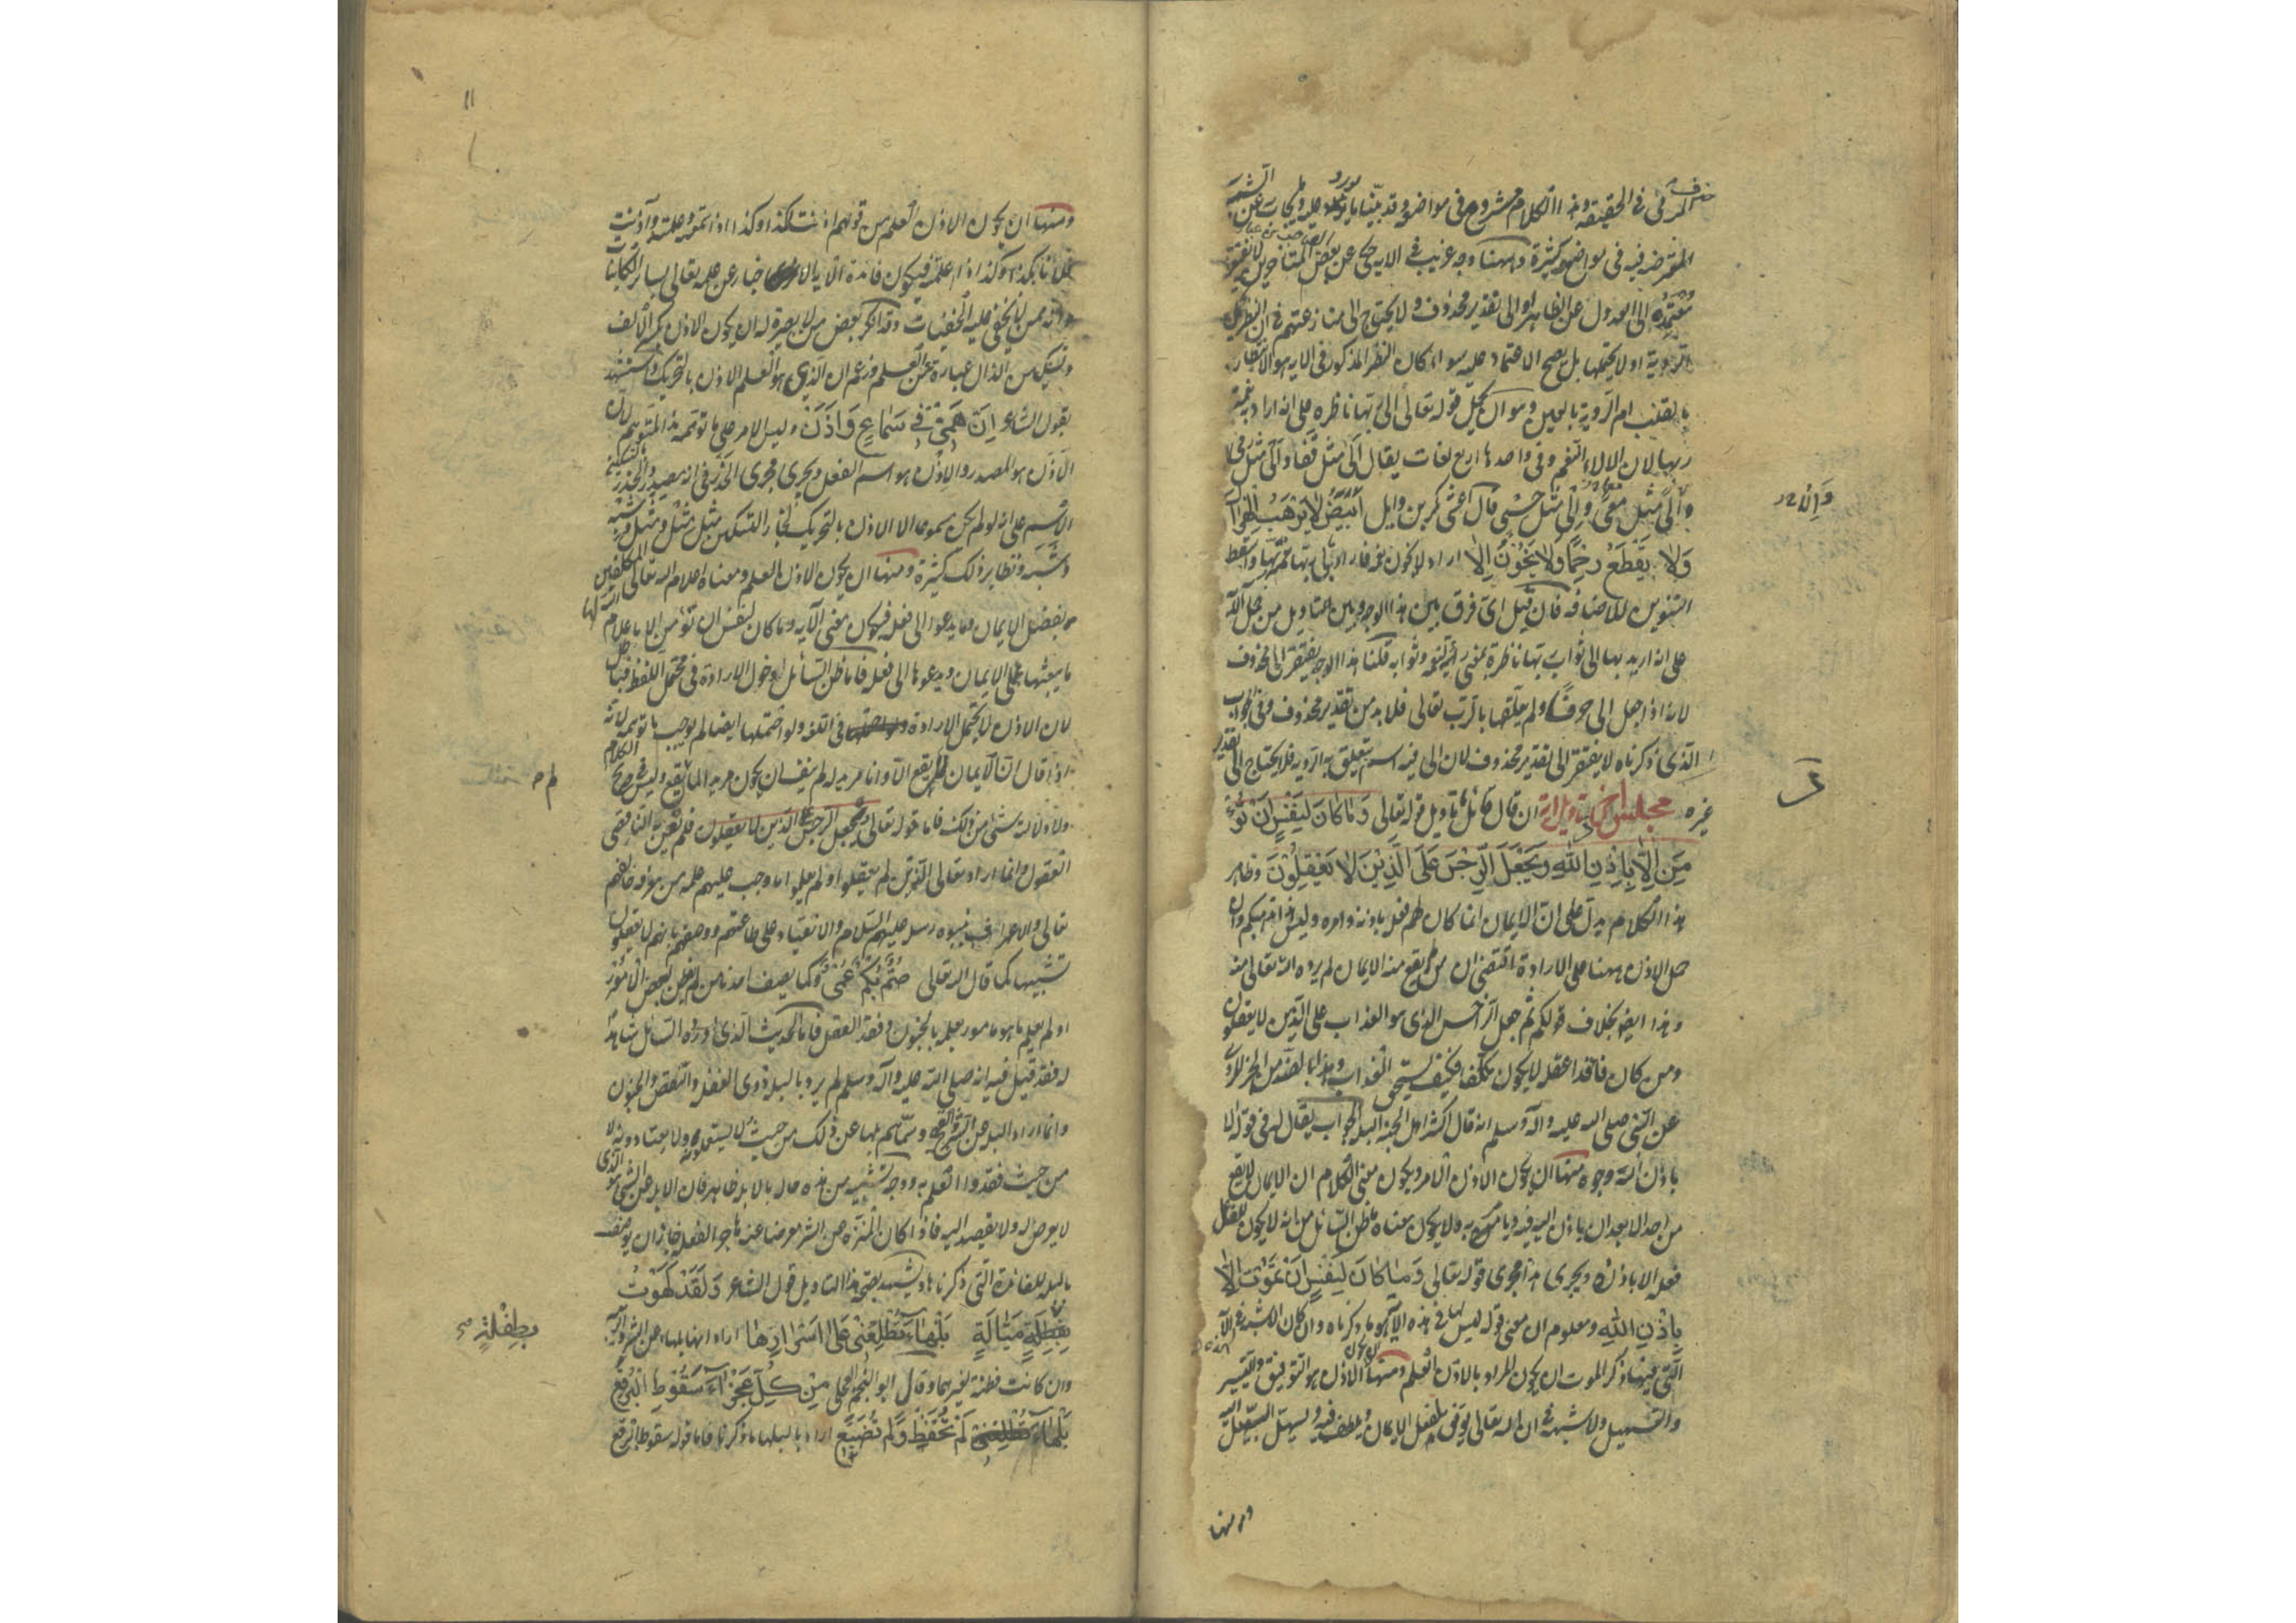 المرئي في الحقيقة وهذا الكلام مشروح في مواضعه وقد بينا ما يورد عليه وما يجاب عن الشبه
المعترضه فيه في مواضع كثيرة وههنا وجه غريب في الايه حكي عن بعض المتاخرين لا يفتقر
معتمده الى العدول عن الظاهر او الى تقدير محذوف ولا يحتاج الى منازعتهم في ان النظر يحتمل
الروية او لا يحتملها بل يصح الاعتماد عليه سواء كان النظر المذكور في الايه هو الانتظار
بالقلب ام الروية بالعين وهو ان يحمل قوله تعالى الى ربها ناظره على انه اراد به نعمة
ربها لان الالاء النعم وفي واحدها اربع لغات يقال الى مثل قفا والى مثل رمى
والى مثل معى والى مثل حسى قال اعشى بكر بن وايل ابيض لا يرهب الهزال
ولا يقطع رحما ولا يخون الا اراد لا يخون نعمة فاراد الى ربها نعمة ربها واسقط
التنوين للاضافه فان قيل اي فرق بين هذا الوجه وبين تاويل من حمل الآيه
على انه اريد بها الى ثواب ربها ناظرة بمعنى رائية لنعمه وثوابه قلنا هذا الوجه يفتقر الى محذوف
لانه اذا جعل الى حرفا ولم يعلقها بالرب تعالى فلا بد من تقدير محذوف وفي الجواب
الذي ذكرناه لا يفتقر الى تقدير محذوف لان الى فيه اسم يتعلق به الروية فلا يحتاج الى تقدير
غيره مجلس آخر تاويل اية ان قال قائل ما تاويل قوله تعالى وما كان لنفس ان تؤ
من الا باذن الله ويجعل الرجس على الذين لا يعقلون وظاهر
هذا الكلام يدل على ان الايمان انما كان لهم فعله باذنه وامره وليس هذا مذهبكم وان
حمل الاذن ههنا على الارادة اقتضى ان من لم يقع منه الايمان لم يرده الله تعالى منه
وهذا ايضا بخلاف قولكم ثم جعل الرجس الذي هو العذاب على الذين لا يعقلون
ومن كان فاقدا عقله لا يكون مكلفا فكيف يستحق العذاب وهذا بالضد من الخبر المروي
عن النبي صلى الله عليه وآله وسلم انه قال اكثر اهل الجنة البله الجواب يقال له في قوله الا
باذن الله وجوه منها ان يكون الاذن الامر ويكون معنى الكلام ان الايمان لا يقع
من احد الا بعد ان ياذن الله فيه ويامر به ولا يكون معناه ما ظن السائل من انه لا يكون للفاعل
فعله الا باذنه ويجري هذا مجرى قوله تعالى وما كان لنفس ان تموت الا
باذن الله ومعلوم ان معنى قوله ليس لها في هذه الآية هو ما ذكرناه وان كان الاشبه في الآية
التي فيها ذكر الموت ان يكون المراد بالاذن العلم ومنها ان يكون الاذن هو التوفيق والتيسير
والتسهيل ولا شبهة في ان الله تعالى يوفق لفعل الايمان ويلطف فيه ويسهل السبيل اليه
ومنها
ومنها ان يكون الاذن العلم من قولهم اذنت لكذا وكذا اذا سمعته وعلمته وآذنت
فلانا بكذا وكذا اذا اعلمته فيكون فائدة الآية الاخبار عن علمه تعالى بسائر الكائنات
وانه ممن لا يخفى عليه الخفيات وقد انكر بعض من لا بصيرة له ان يكون الاذن بكسر الالف
وتسكين الذال عبارة عن العلم وزعم ان الذي هو العلم الاذن بالتحريك واستشهد
بقول الشاعر ان همي في سماع واذن وليس الامر على ما توهمه هذا المتوهم لان
الاذن هو المصدر والاذن هو اسم الفعل ويجري مجرى الحذر في انه مصدر والحذر بالتسكين
الاسم على انه لو لم يكن مسموعا الا الاذن بالتحريك لجاز التسكين مثل مثل ومثل وشبه
وشبه ونظاير ذلك كثيرة ومنها ان يكون الاذن العلم ومعناه اعلام الله تعالى المكلفين
بفضل الايمان وما يدعوا الى فعله فيكون معنى الآيه وما كان لنفس ان تؤمن الا باعلام الله لها
ما يبعثها على الايمان ويدعوها الى فعله فاما ظن السائل دخول الارادة في محتمل اللفظ فباطل
لان الاذن لا يحتمل الارادة في اللغة ولو احتملها ايضا لم يجب ما توهمه لانه
اذا قال ان الايمان لم يقع الا وانا مريد له لم ينف ان يكون مريدا لما لم يقع وليس في صريح الكلام
ولا دلالة شيء من ذلك فاما قوله تعالى ويجعل الرجس على الذين لا يعقلون فلم يعن به الناقصي
العقول وانما اراد تعالى الذين لم يعقلوا ولم يعلموا ما وجب عليهم علمه من معرفة خالقهم
تعالى والاعتراف بنبوة رسله عليهم السلام والانقياد على طاعتهم ووصفهم بانهم لا يعقلون
تشبيها كما قال الله تعالى صم بكم عمي وكما يصف احدنا من لم يفطن لبعض الامور
او لم يعلم ما هو مامور بعلمه بالجنون وفقد العقل فاما الحديث الذي اورده السائل شاهدا
له فقد قيل فيه انه صلى الله عليه وآله وسلم لم يرد بالبله ذوي الغفلة والنقص والجنون
وانما اراد البله عن الشر والقبيح وسماهم بلها عن ذلك من حيث لا يستعملونه ولا يعتادونه لا
من حيث فقدوا العلم به ووجه تشبيه من هذه حاله بالابله ظاهر فان الابله عن الشيء هو الذي
لا يعرض له ولا يقصد اليه فاذا كان المتنزه عن الشر معرضا عنه هاجرا لفعله جاز ان يوصف
بالبله للفائدة التي ذكرناها ويشهد بصحة هذا التاويل قول الشاعر ولقد لهوت
بطفلة ميالة بلهاء تطلعني على اسرارها اراد انها بلهاء عن الشر والريبة
وان كانت فطنة لغيرهما وقال ابو النجم العجلي من كل عجزاء سقوط البرقع
بلهاء لم تحفظ ولم تضيع اراد بالبلهاء ما ذكرنا فاما قوله سقوط البرقع
بطفلة